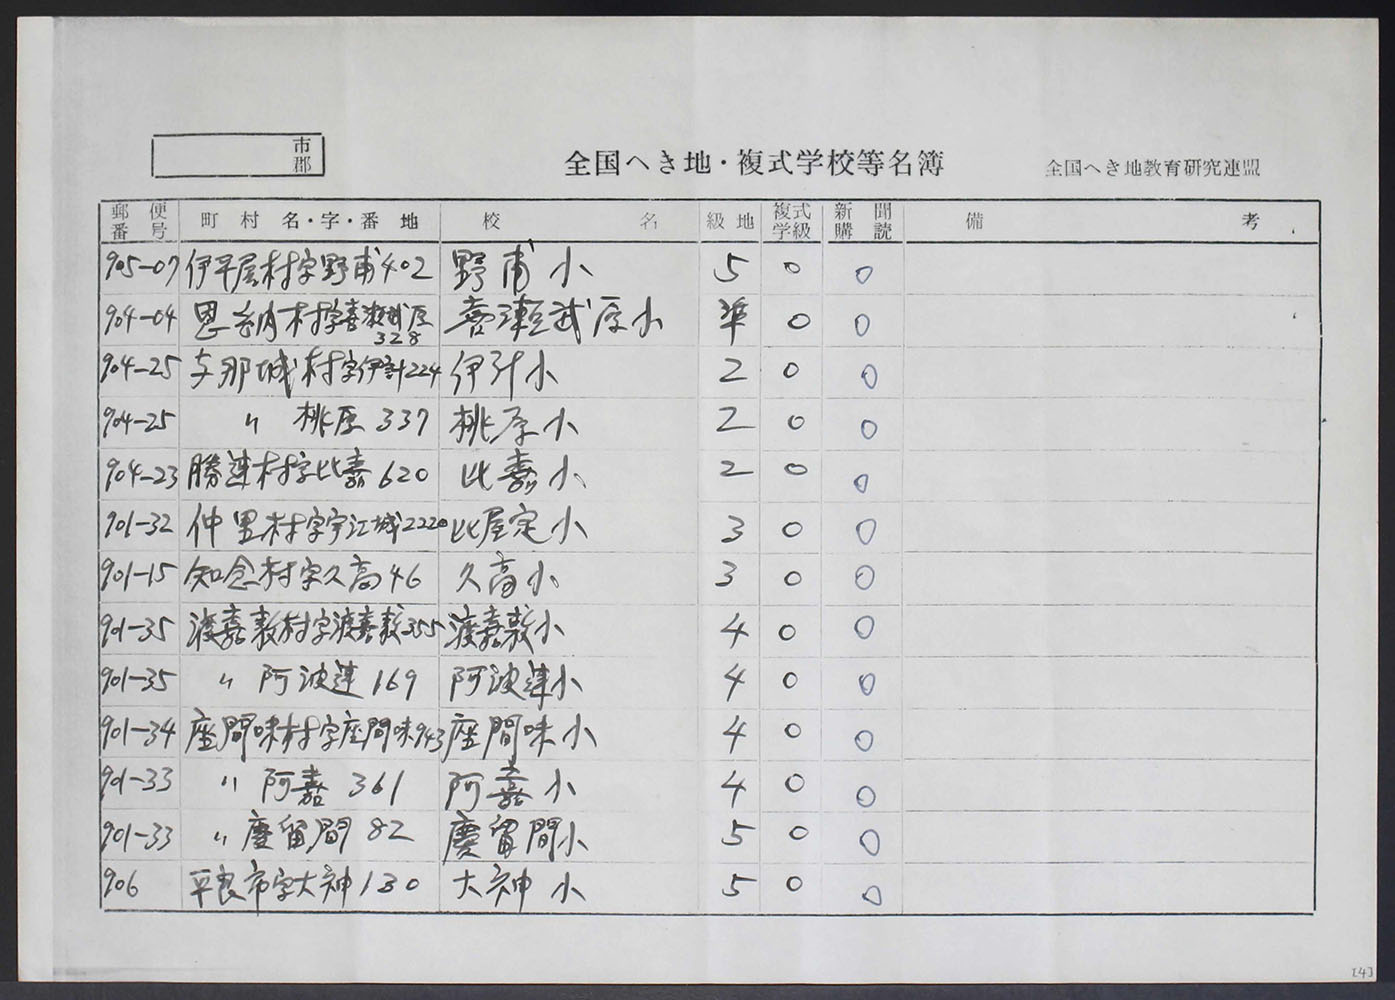 市
郡
全国へき地・複式学校等名簿 全国へき地教育研究連盟
郵便番号 町村名・字・番地 校名 級地 複式学級 新聞購読 備考
905-07 伊平屋村字野甫402 野甫小 5 ○ ○
904-04 恩納村字喜瀬武原328 喜瀬武原小 準 ○ ○
904-25 与那城村字伊計224 伊計小 2 ○ ○
904-25 〃 桃原 337 桃原小 2 ○ ○
904-23 勝連村字比嘉620 比嘉小 2 ○ ○
901-32 仲里村字宇江城2220 比屋定小 3 ○ ○
901-15 知念村字久高46 久高小 3 ○ ○
901-35 渡嘉敷村字渡嘉敷355 渡嘉敷小 4 ○ ○
901-35 〃 阿波連169 阿波連小 4 ○ ○
901-34 座間味村字座間味943 座間味小 4 ○ ○
901-33 〃 阿嘉 361 阿嘉小 4 ○ ○
901-33 〃 慶留間 82 慶留間小 5 ○ ○
906 平良市字大神130 大神小 5 ○ ○
[4]